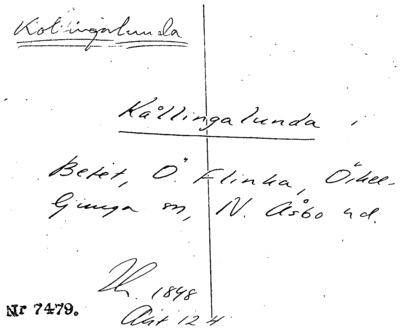 Kollingalunda
Kållingalunda i
Betet, Ö. Flinka, Örkel-
ljunga sn, N. Åsbo hd.
1848
Akt 124
Nr 7479.